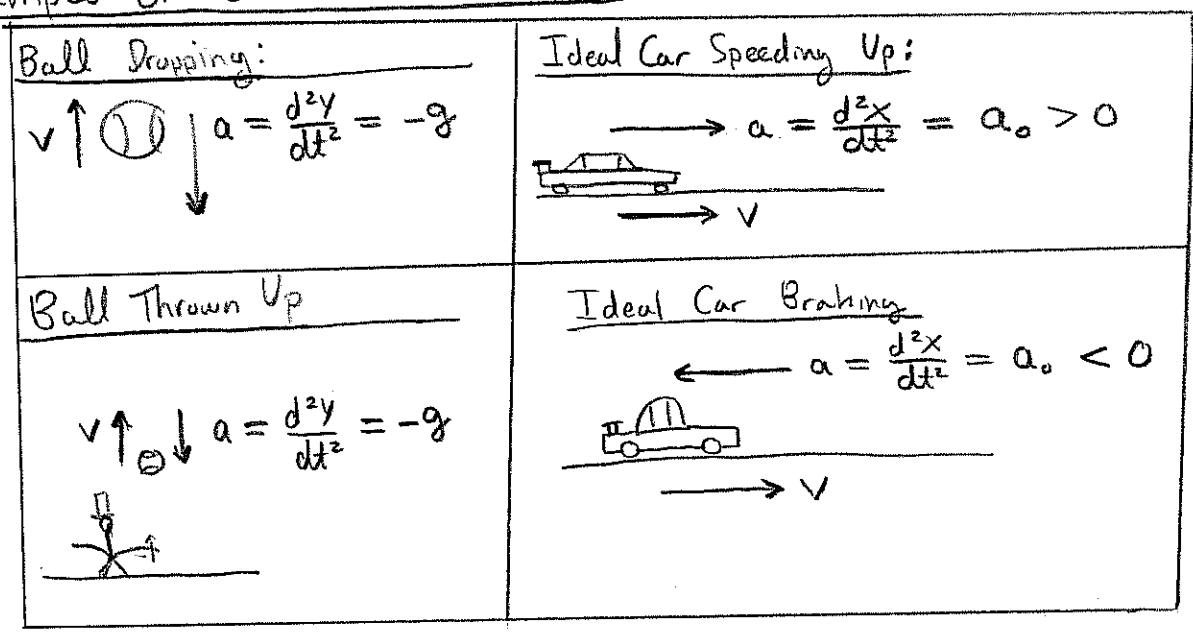 Ball Dropping:
v a = d²y/dt² = -g
Ideal Car Speeding Up:
a = d²x/dt² = a₀ > 0
v
Ball Thrown Up
v a = d²y/dt² = -g
Ideal Car Braking
a = d²x/dt² = a₀ < 0
v